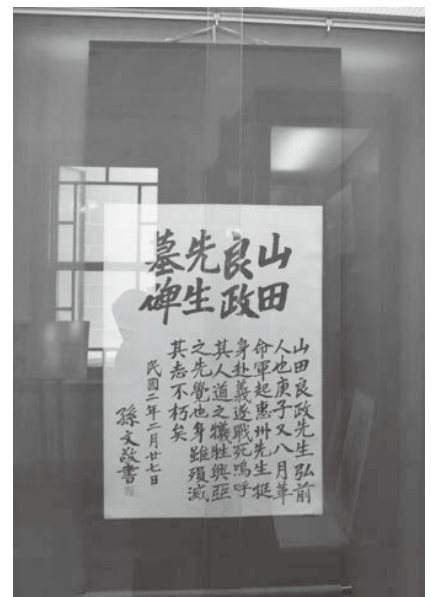 山田
良政
先生
墓碑
山田良政先生弘前
人也庚子又八月革
命軍起惠州先生挺
身赴義遂戰死嗚呼
其人道之犧牲興亞
之先覺也身雖殞滅
其志不朽矣
民國二年二月廿七日
孫文敬書